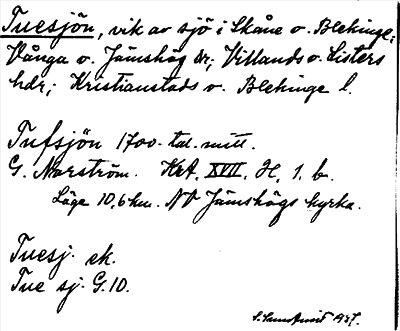 Tuesjön, vik av sjö i Skåne o. Blekinge;
Vånga o. Jämshög sr; Villands o. Listers
hdr; Kristianstads o. Blekinge l.
Tufsjön 1700-tal. mitt.
G. Norström. Krt. XVII. H. 1. b.
Läge 10,6 km. NV Jämshögs kyrka.
Tuesj. ek.
Tue sj. G. 10.
1937.